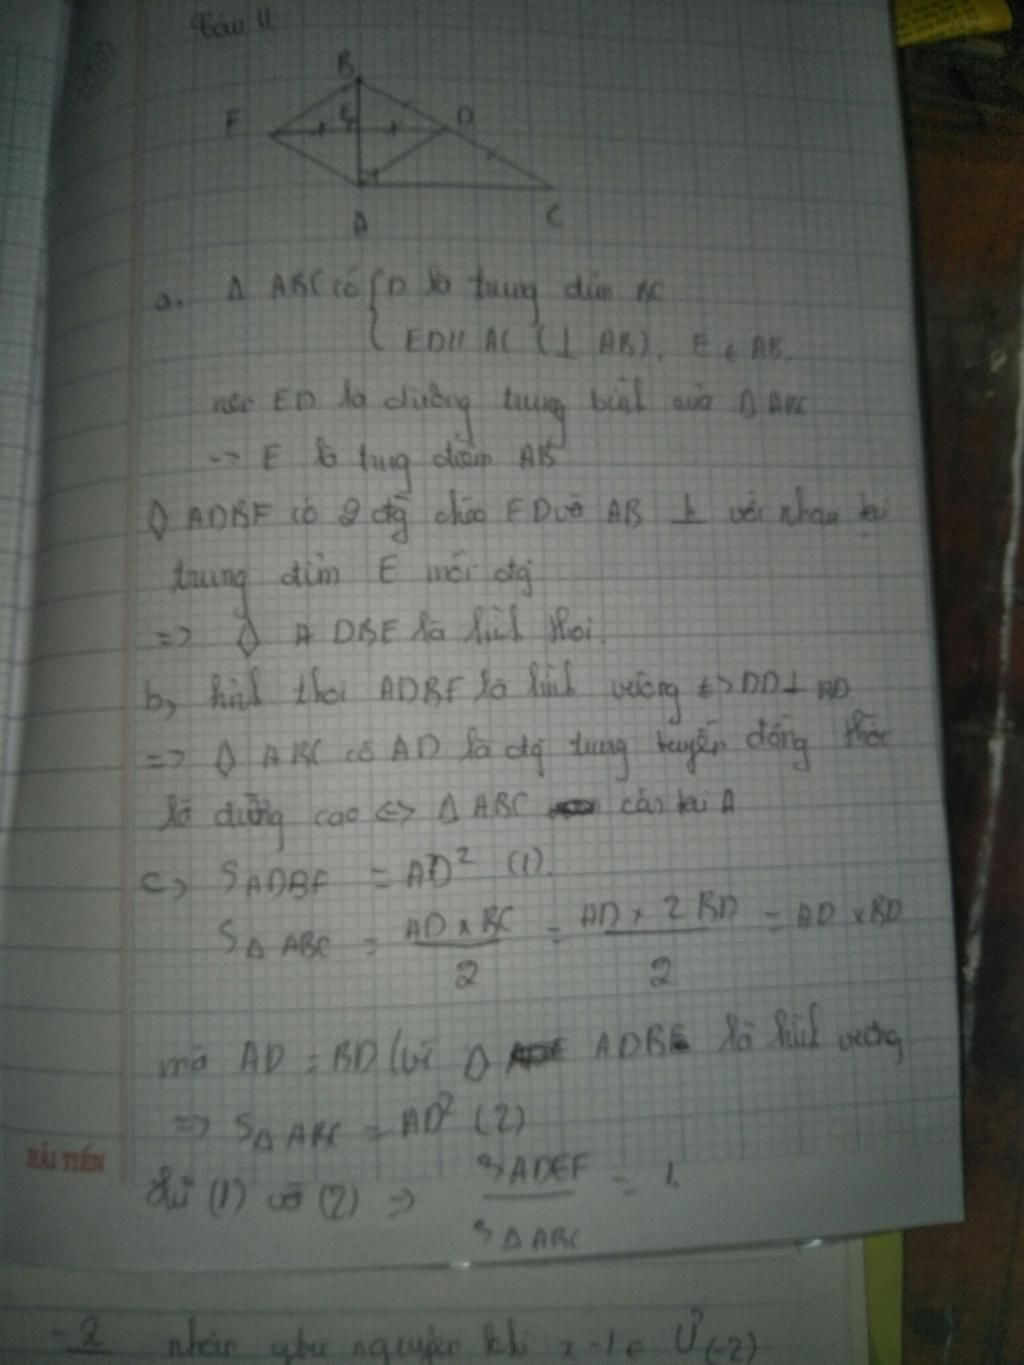 Câu 4
B
F
E
D
A
C
a. Δ ABC có { D là trung điểm BC
ED // AC (⊥ AB), E ∈ AB.
nên ED là đường trung bình của Δ ABC
-> E là trung điểm AB
◊ ADBF có 2 đg chéo FD và AB ⊥ với nhau tại
trung điểm E mỗi đg
=> ◊ ADBF là hình thoi.
b, hình thoi ADBF là hình vuông <=> BD ⊥ AD
=> Δ ABC có AD là đg trung tuyến đồng thời
là đường cao <=> Δ ABC cân tại A
c, S ADBF = AD² (1).
S Δ ABC = AD x BC / 2 = AD x 2BD / 2 = AD x BD
mà AD = BD (vì ADBF là hình vuông
=> S Δ ABC = AD² (2)
Từ (1) và (2) => S ADEF / S Δ ABC = 1.
HẢI TIẾN
-2 nhận nguyên khi x-1 ∈ Ư(-2)